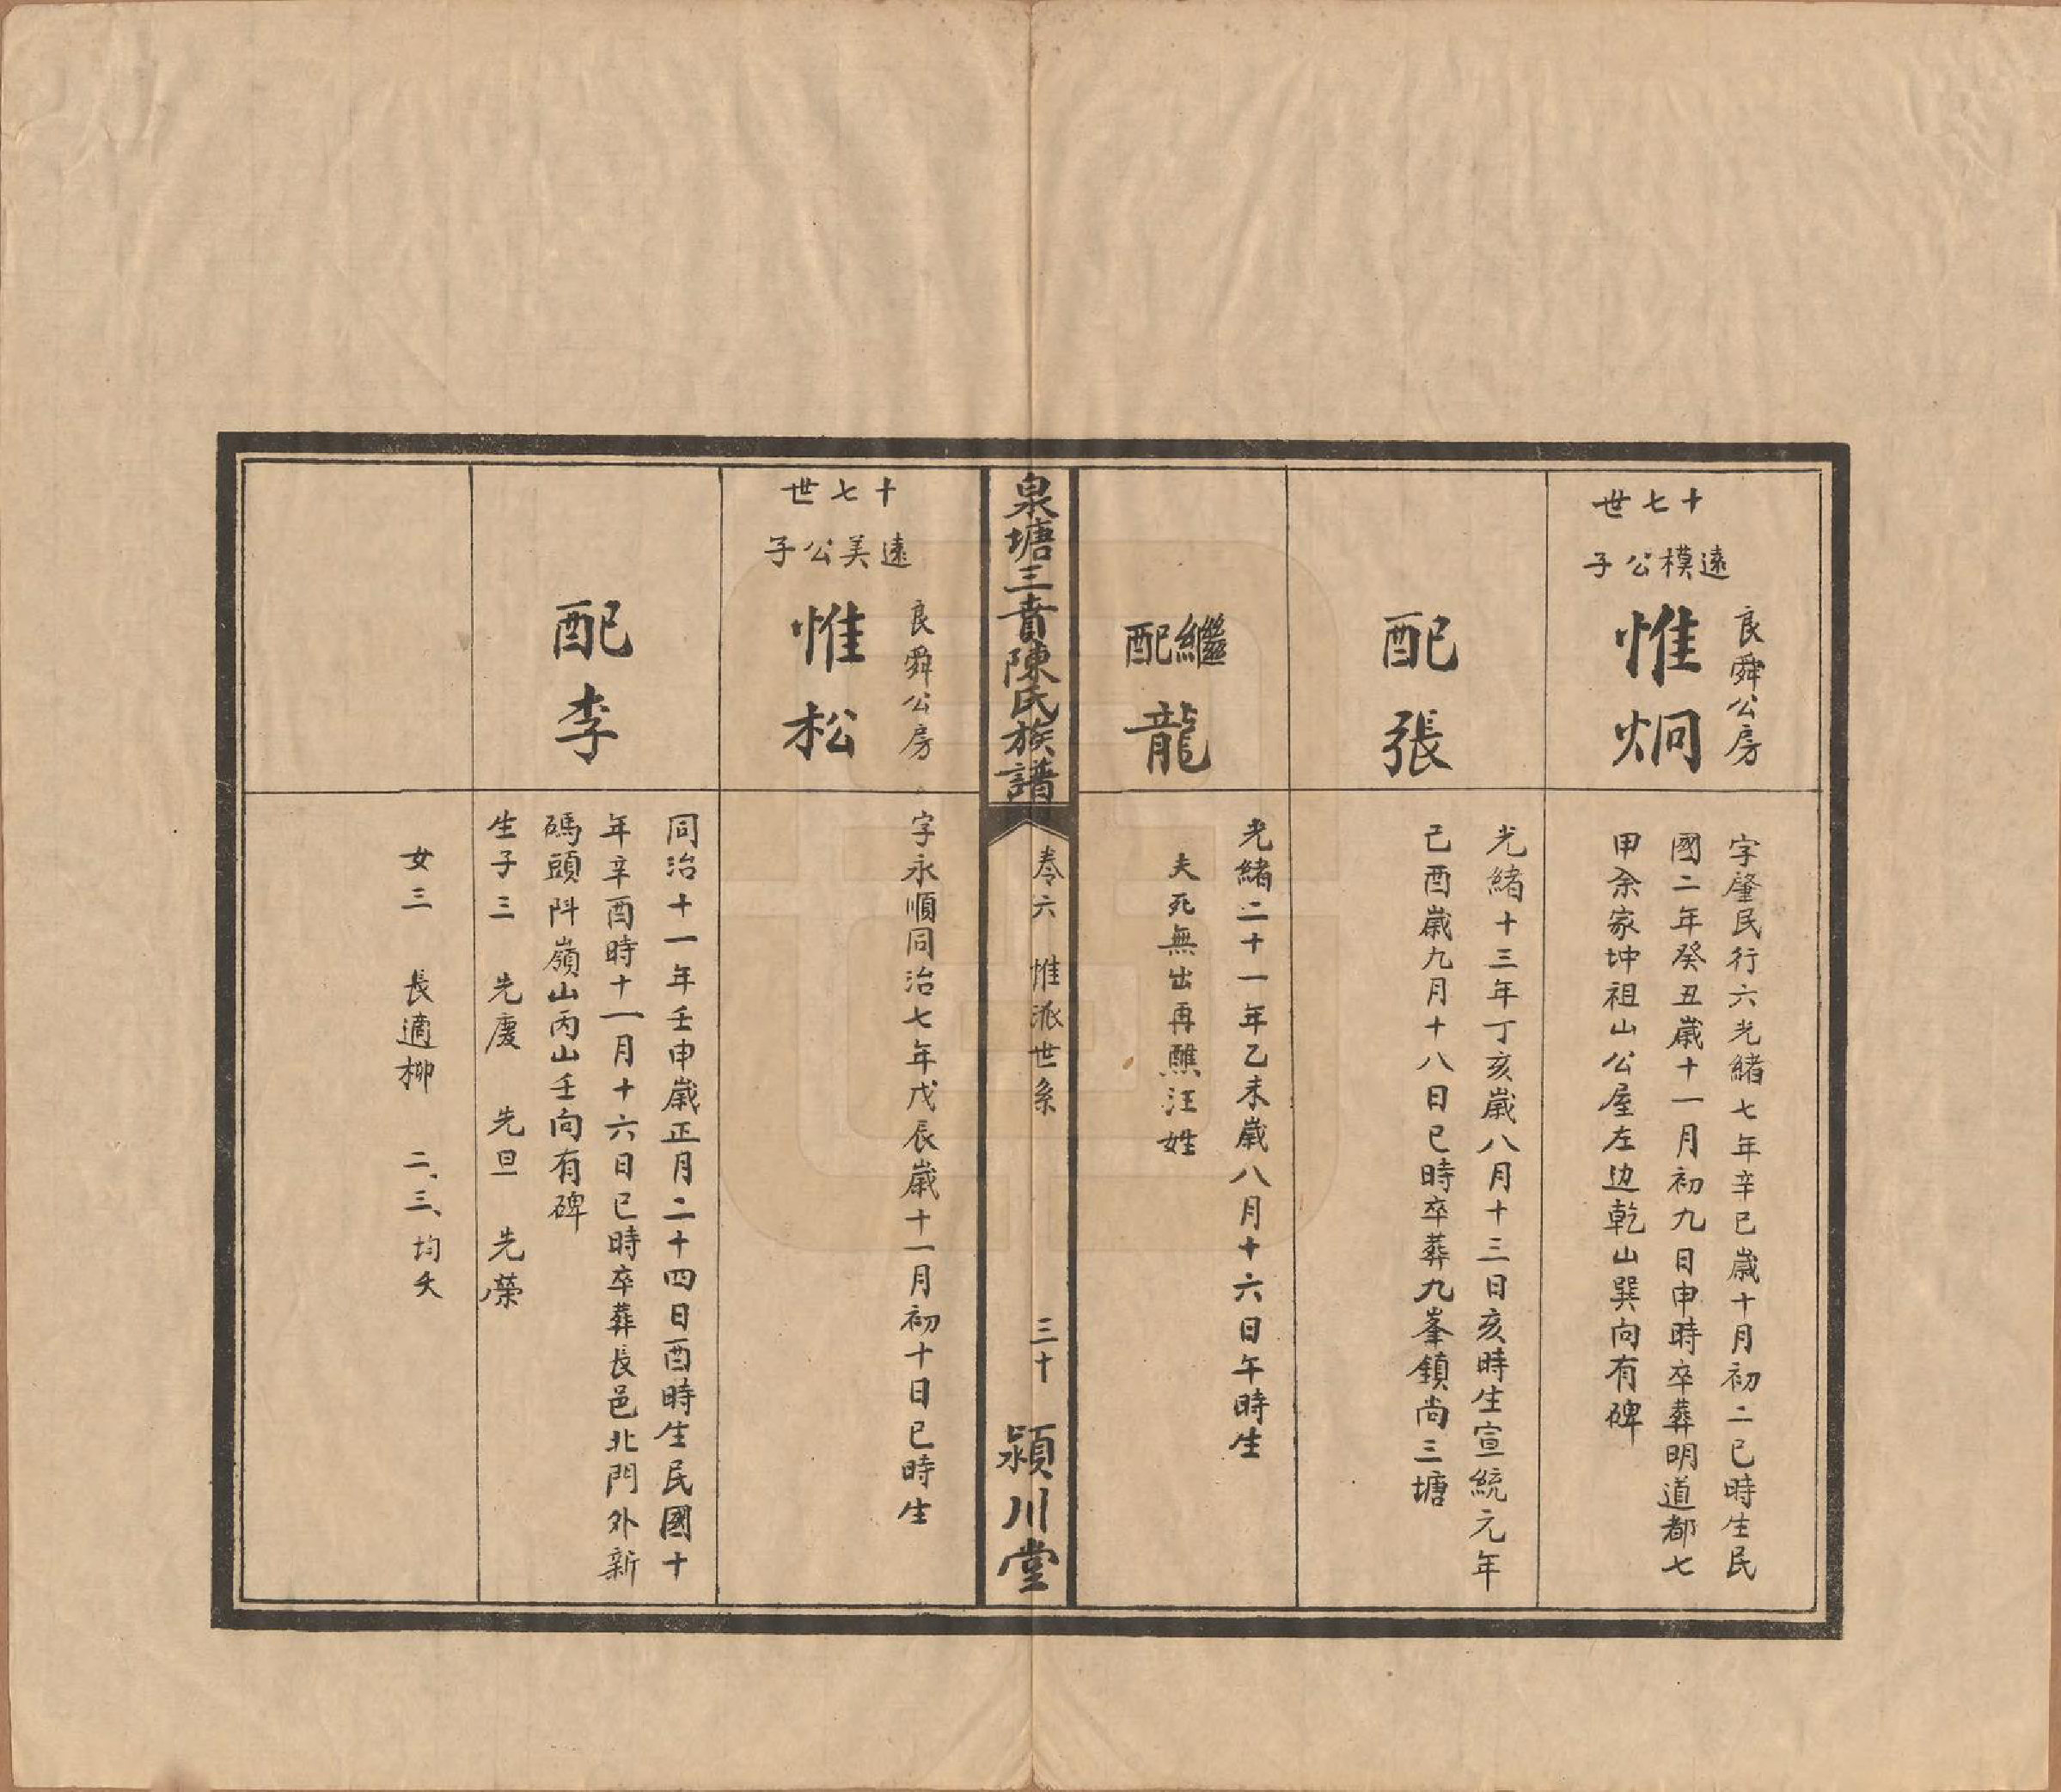 十七世
遠模公子
良舜公房
惟炯
字肇民行六光緒七年辛巳歲十月初二巳時生民
國二年癸丑歲十一月初九日申時卒葬明道都七
甲余家坤祖山公屋左边乾山巽向有碑
配張
光緒十三年丁亥歲八月十三日亥時生宣統元年
己酉歲九月十八日巳時卒葬九峯鎮尚三塘
繼配龍
光緒二十一年乙未歲八月十六日午時生
夫死無出再醮汪姓
泉塘三賁陳氏族譜
卷六 惟派世系 三十
潁川堂
十七世
遠美公子
良舜公房
惟松
字永順同治七年戊辰歲十一月初十日巳時生
配李
同治十一年壬申歲正月二十四日酉時生民國十
年辛酉時十一月十六日巳時卒葬長邑北門外新
碼頭阧嶺山丙山壬向有碑
生子三 先慶 先旦 先榮
女三 長適柳 二、三、均夭